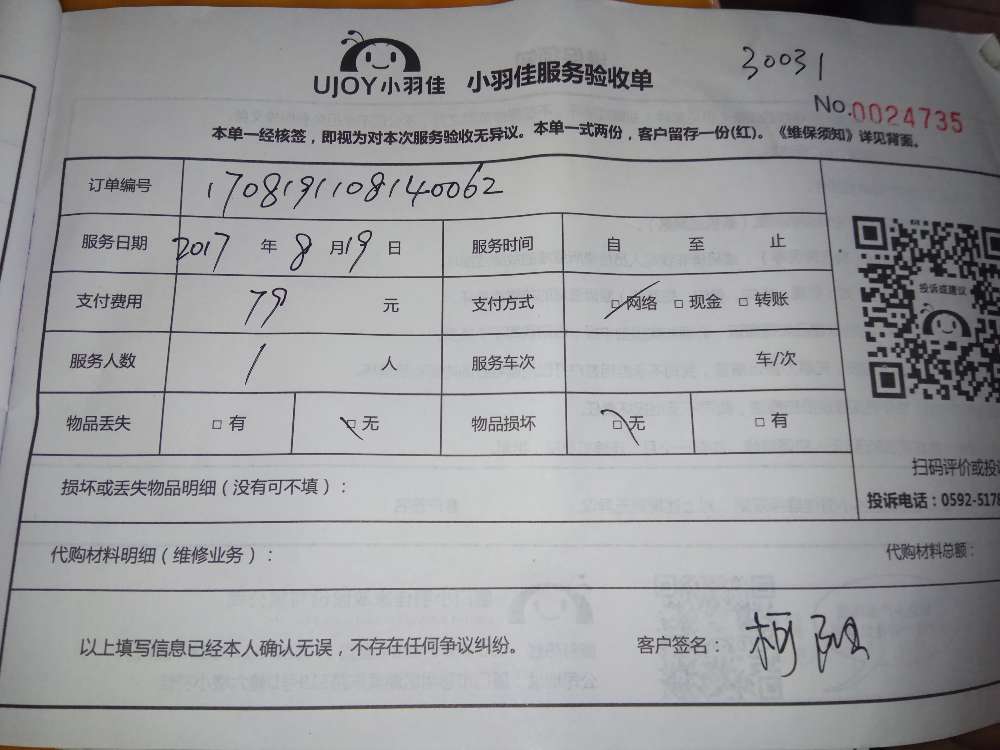 30031
UJOY小羽佳 小羽佳服务验收单
No.0024735
本单一经核签，即视为对本次服务验收无异议。本单一式两份，客户留存一份(红)。《维保须知》详见背面。
订单编号 1708191108140062
服务日期 2017 年 8 月 19 日 服务时间 自 至 止
支付费用 79 元 支付方式 □网络 □现金 □转账
投诉或建议
服务人数 1 人 服务车次 车/次
物品丢失 □有 □无 物品损坏 □无 □有
扫码评价或投
损坏或丢失物品明细（没有可不填）：
投诉电话：0592-5178
代购材料明细（维修业务）： 代购材料总额：
以上填写信息已经本人确认无误，不存在任何争议纠纷。 客户签名： 柯